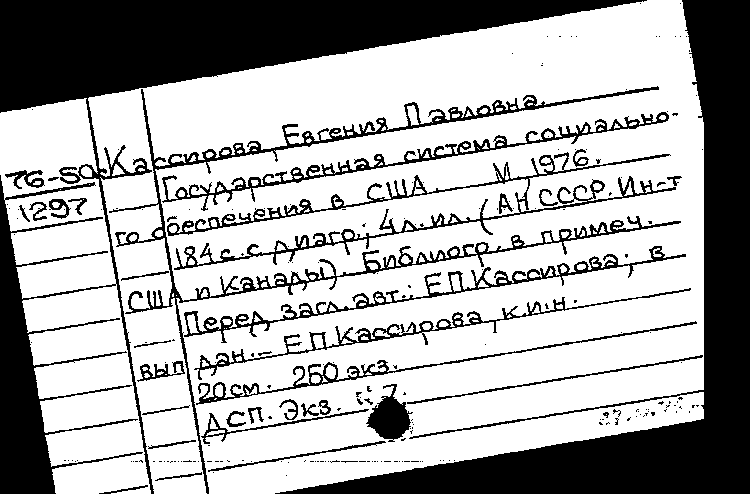 76-50 Кассирова, Евгения Павловна.
1297 Государственная система социально-
го обеспечения в США. М, 1976.
184 с. с диагр.; 4 л. ил. (АН СССР. Ин-т
США и Канады). Библиогр. в примеч.
Перед загл. авт.: Е.П. Кассирова; в
вып. дан.- Е.П. Кассирова, к.и.н.
20 см. 250 экз.
ДСП. Экз.